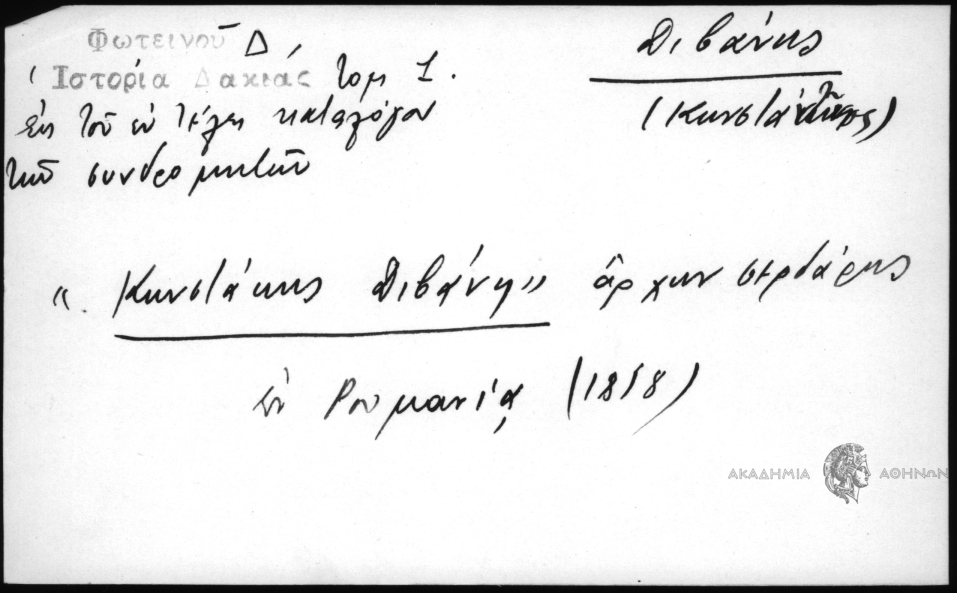 Φωτεινοῦ Δ,
Ἱστορία Δακίας τομ 1.
Εκ τοῦ ἐν τέλει καταλόγου
τῶν συνδρομητῶν
Διβάνης
(Κωνσταντῖνος)
"Κωνστάκης Διβάνη" ἄρχων σερδάρης
ἐν Ρουμανίᾳ (1818)
ΑΚΑΔΗΜΙΑ ΑΘΗΝΩΝ